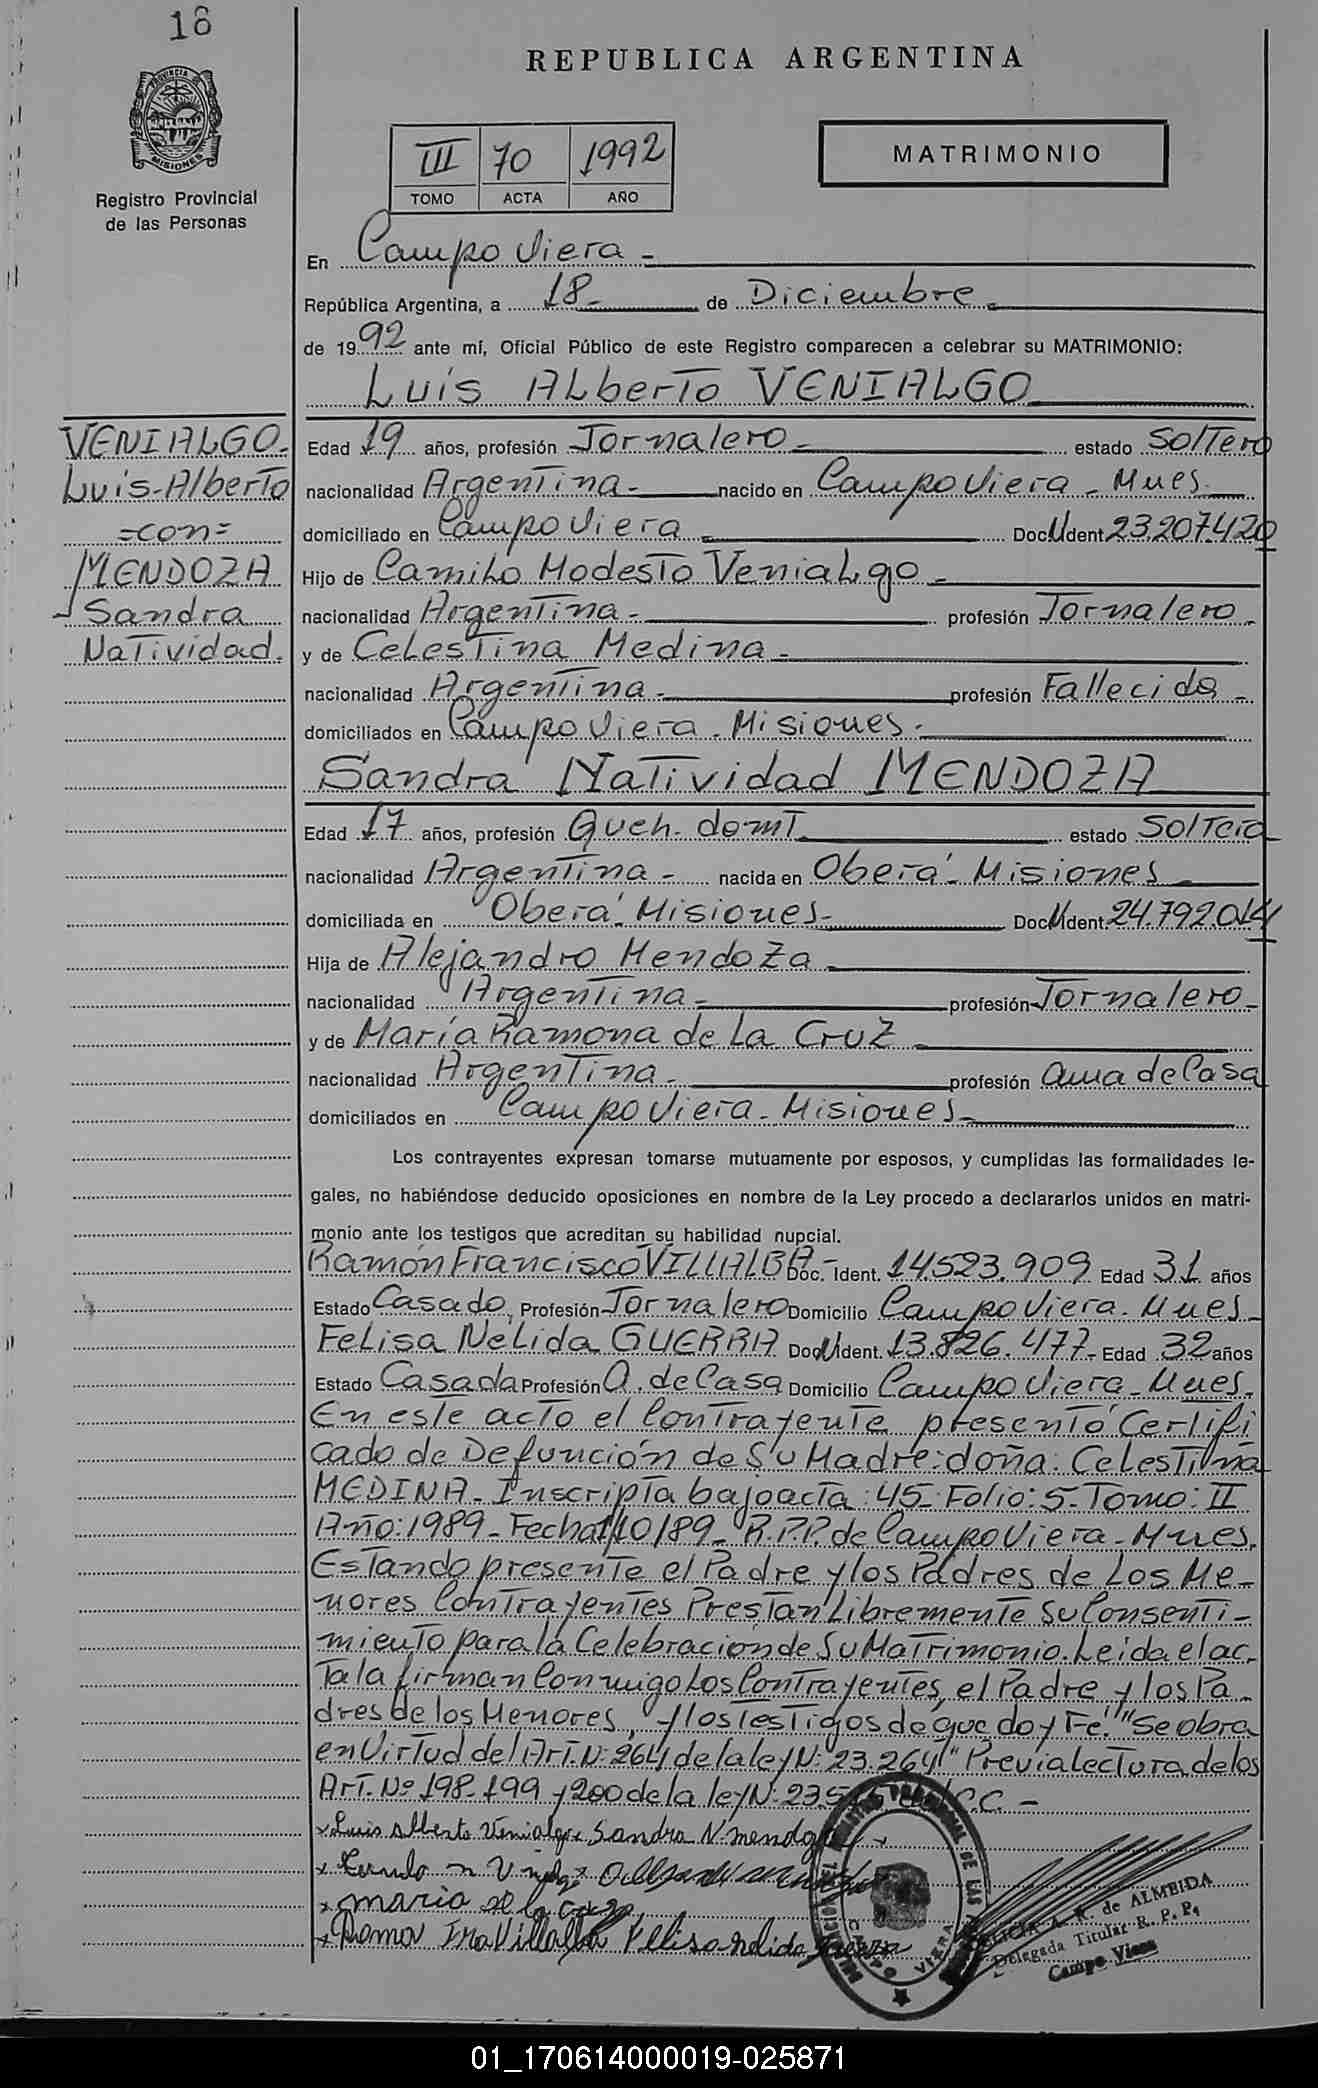 18
REPUBLICA ARGENTINA
PROVINCIA DE
MISIONES
Registro Provincial
de las Personas
III 70 1992
TOMO ACTA AÑO
MATRIMONIO
En Campo Viera -
República Argentina, a 18- de Diciembre -
de 1992 ante mí, Oficial Público de este Registro comparecen a celebrar su MATRIMONIO:
Luis Alberto VENIALGO
VENIALGO-
Luis-Alberto
=con=
MENDOZA
Sandra
Natividad.
Edad 19 años, profesión Jornalero - estado Soltero
nacionalidad Argentina - nacido en Campo Viera - Mnes.
domiciliado en Campo Viera - Doc.U.Ident 23.207.420
Hijo de Camilo Modesto Venialgo -
nacionalidad Argentina - profesión Jornalero -
y de Celestina Medina -
nacionalidad Argentina - profesión Fallecida -
domiciliados en Campo Viera - Misiones -
Sandra Natividad MENDOZA
Edad 17 años, profesión Queh. domt. estado Soltera
nacionalidad Argentina - nacida en Oberá - Misiones -
domiciliada en Oberá - Misiones - Doc.U.Ident. 24.792.014
Hija de Alejandro Mendoza -
nacionalidad Argentina - profesión Jornalero -
y de María Ramona de La Cruz -
nacionalidad Argentina - profesión ama de Casa
domiciliados en Campo Viera - Misiones -
Los contrayentes expresan tomarse mutuamente por esposos, y cumplidas las formalidades le-
gales, no habiéndose deducido oposiciones en nombre de la Ley procedo a declararlos unidos en matri-
monio ante los testigos que acreditan su habilidad nupcial.
Ramón Francisco VILLALBA - Doc. Ident. 14.523.909 Edad 31 años
Estado Casado, Profesión Jornalero Domicilio Campo Viera - Mnes -
Felisa Nélida GUERRA Doc.U.Ident. 13.826.477 - Edad 32 años
Estado Casada Profesión A. de Casa Domicilio Campo Viera - Mnes.
En este acto el Contrayente presentó Certifi
cado de Defunción de Su Madre: doña: Celestina
MEDINA - Inscripta bajo acta: 45 - Folio: 5 - Tomo: II
Año: 1989 - Fecha 1/10/89 - R.P.P. de Campo Viera - Mnes.
Estando presente el Padre y los Padres de Los Me-
nores Contrayentes Prestan Libremente Su Consenti-
miento para la Celebración de Su Matrimonio. Leida el ac-
ta la firman Conmigo Los Contrayentes, el Padre y los Pa-
dres de los Menores, y los Testigos de que doy Fe. "Se obra
en Virtud del Art. N: 264 de la ley N: 23.264" Previa lectura de los
Art. Nº 198 - 199 y 200 de la ley N: 23.515 C.C. -
x Luis Alberto Venialgo x Sandra N. Mendoza x
x maria de la cruz
x Ramon Fra Villalba Felisa nelida guerra
CAMPO VIERA
A. R. de ALMEIDA
Delegada Titular R. P. P.
Campo Viera
01_170614000019-025871